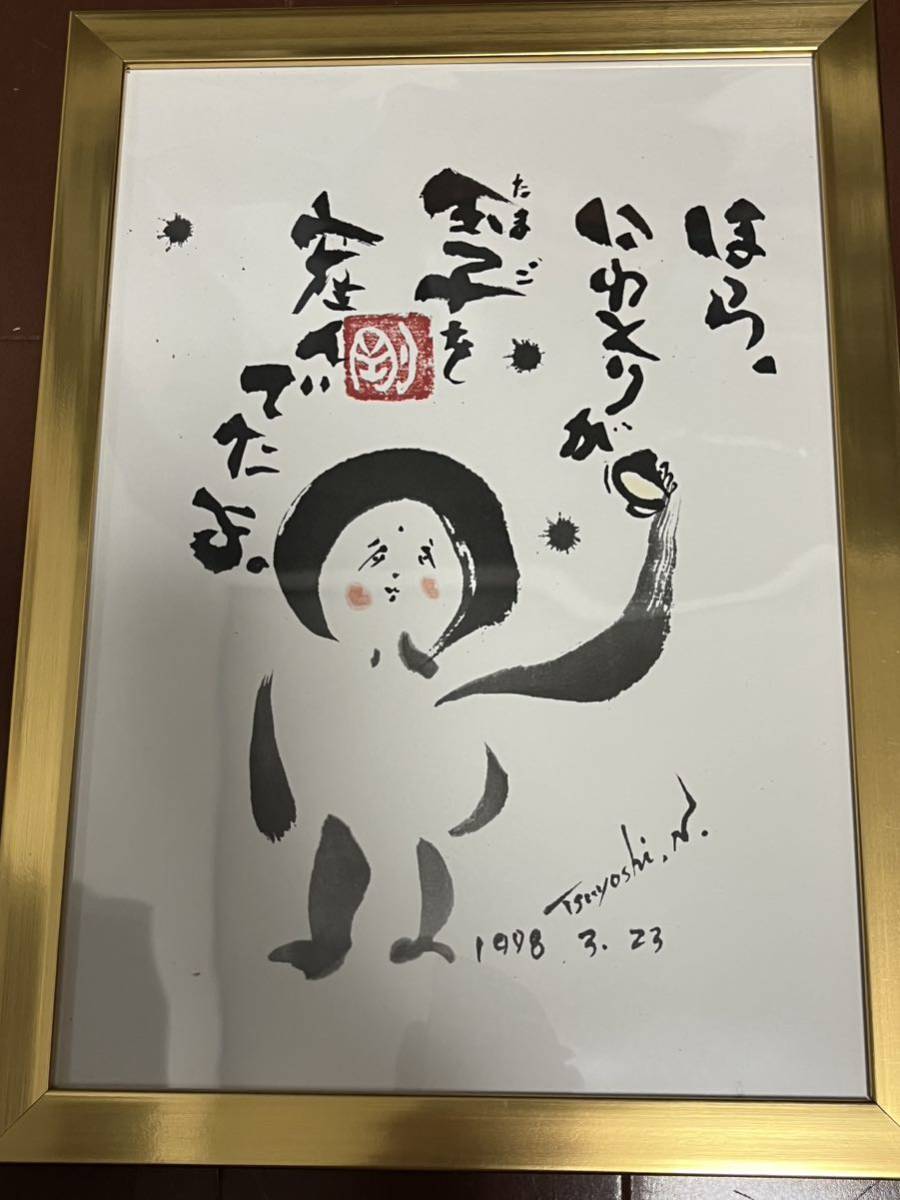 ほら、
にわとりが
玉子を
たまご
産んでたよ。
剛
Tsuyoshi.N.
1998 3. 23